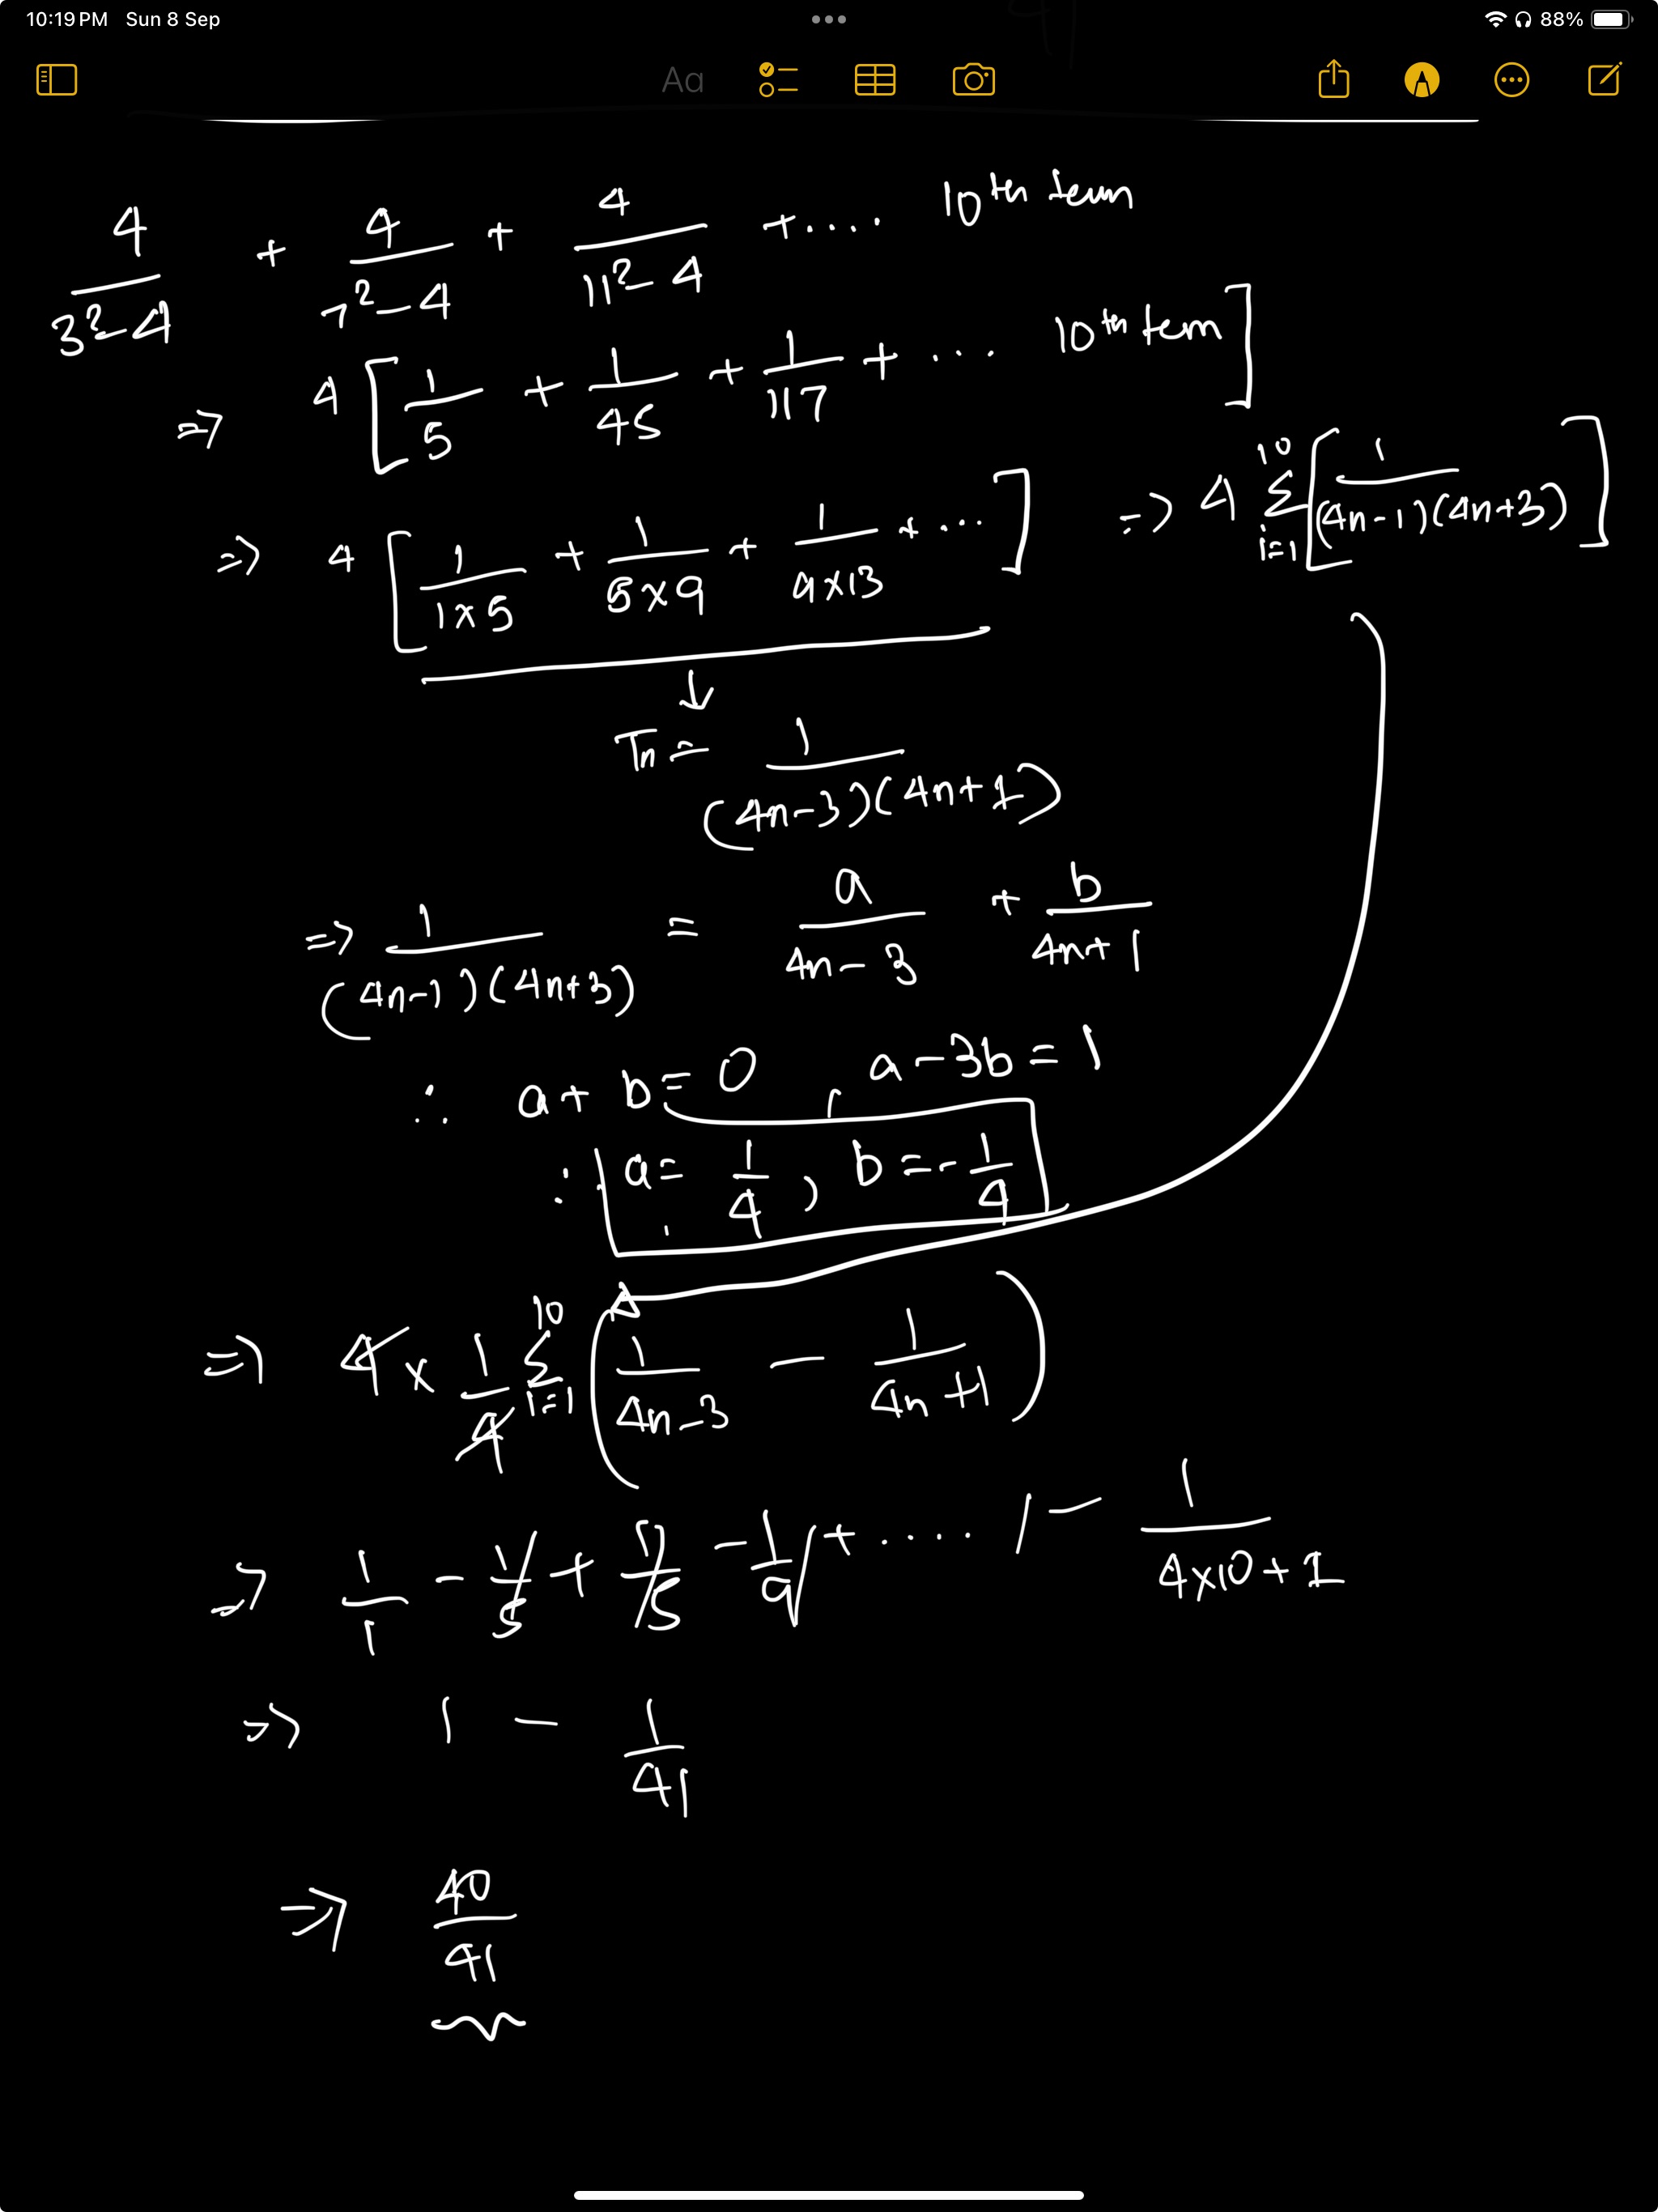 10:19 PM Sun 8 Sep 88%
Aa
4/(3²-4) + 4/(7²-4) + 4/(11²-4) +.... 10th term
⇒ 4[1/5 + 1/45 + 1/117 + ... 10th term]
⇒ 4[1/(1×5) + 1/(5×9) + 1/(9×13) + ...] ⇒ 4 Σ_{i=1}^{10} [1/((4n-1)(4n+3))]
↓
Tn = 1/((4n-3)(4n+1))
⇒ 1/((4n-1)(4n+3)) = a/(4n-3) + b/(4n+1)
∴ a+b=0 , a-3b=1
∴ a=1/4, b=-1/4
⇒ 4 × 1/4 Σ_{i=1}^{10} (1/(4n-3) - 1/(4n+1))
⇒ 1/1 - 1/5 + 1/5 - 1/9 + .... / - 1/(4×10+1)
⇒ 1 - 1/41
⇒ 40/41